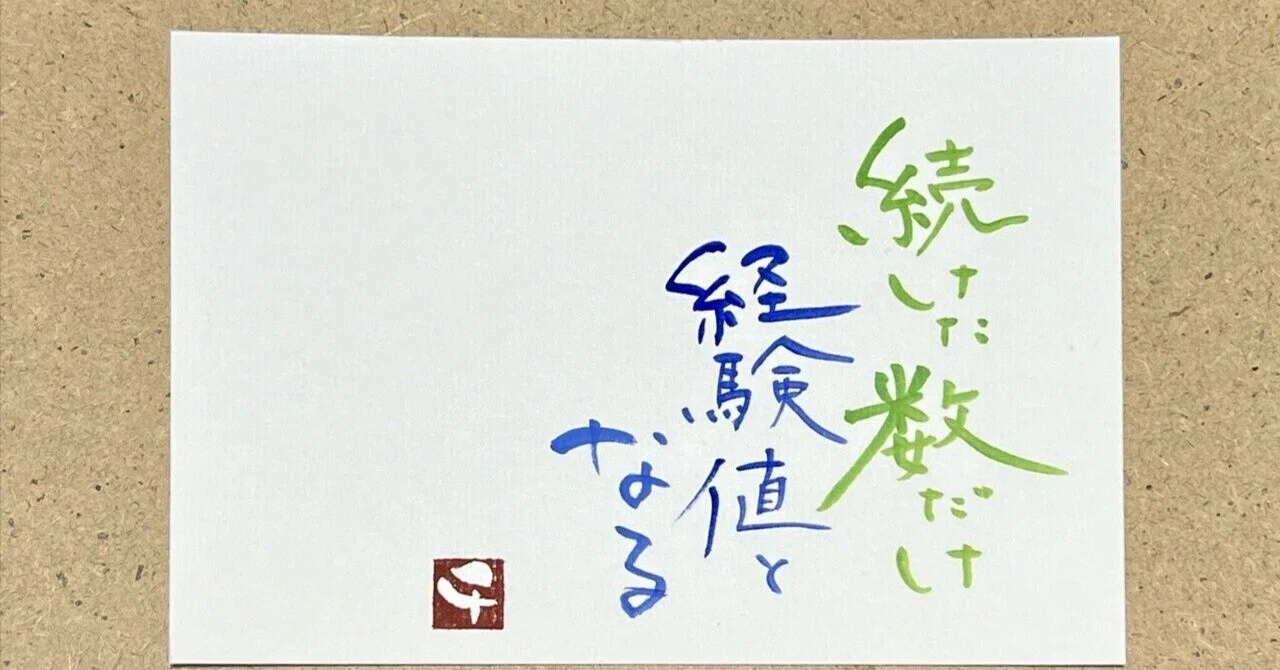 続けた数だけ
経験値と
なる